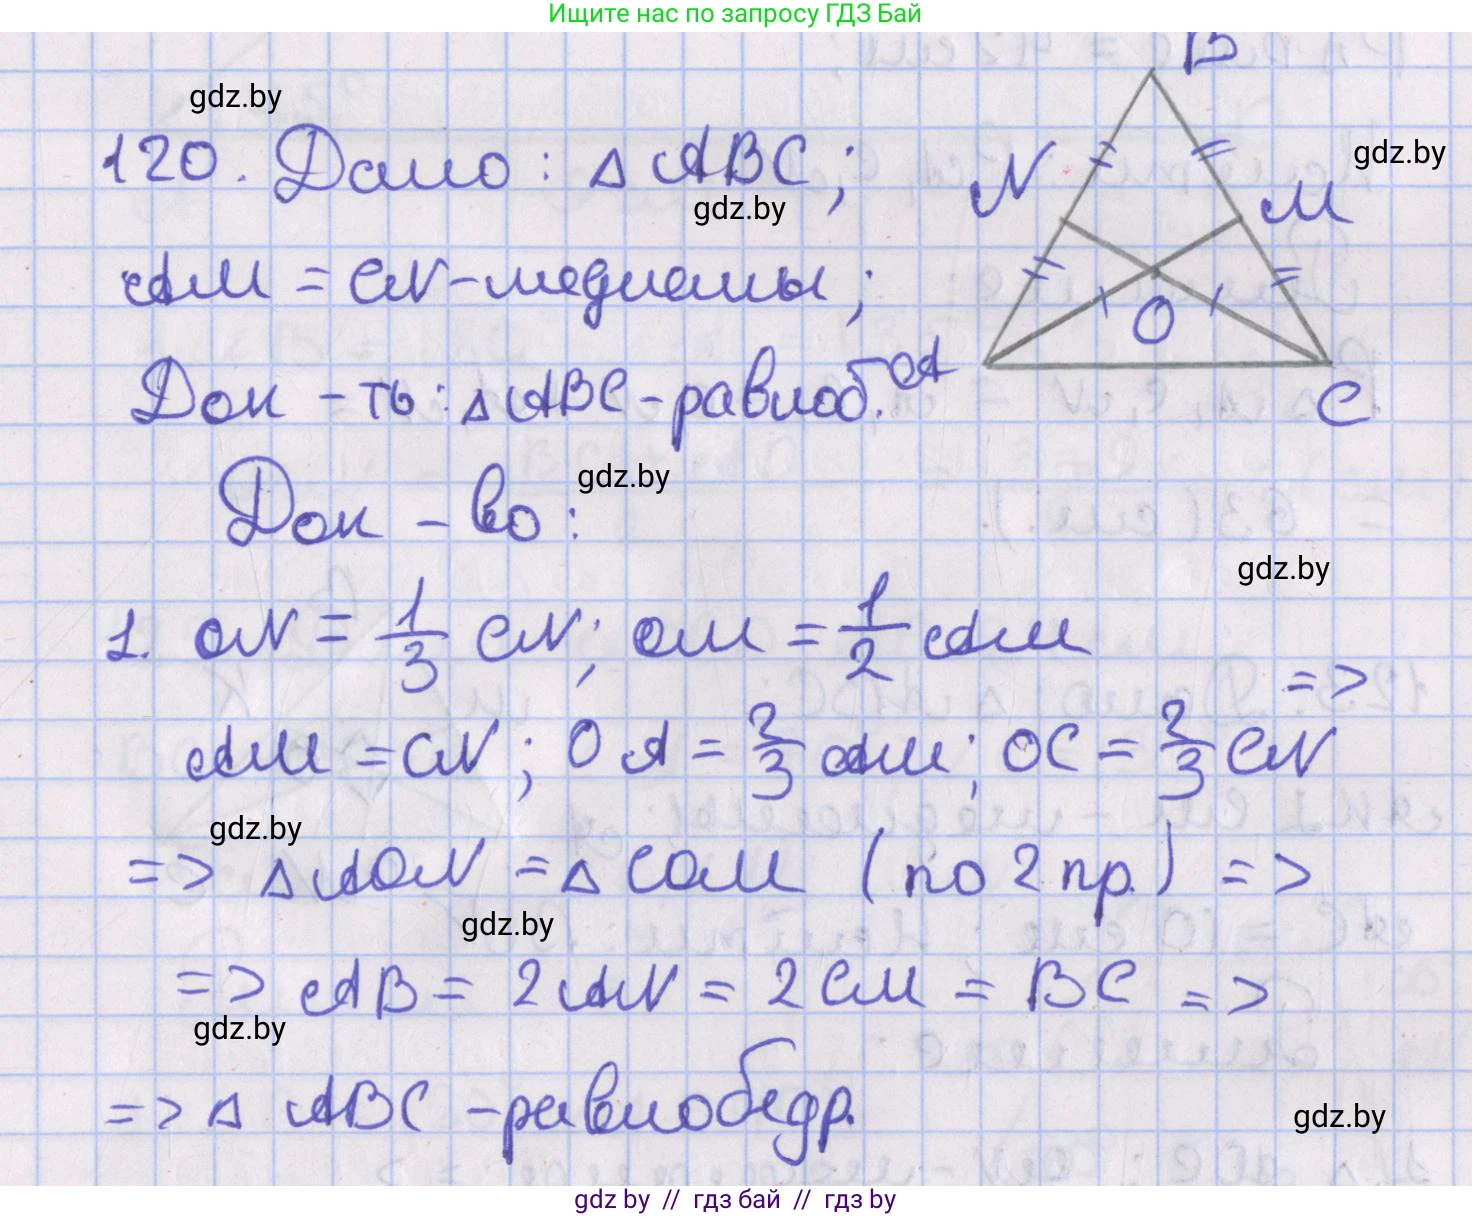 Ищите нас по запросу ГДЗ Бай
B
gdz.by
120. Дано: △ ABC;
gdz.by
N
M
gdz.by
AM = CN - медианы;
O
Док - ть: △ ABC - равноб.
A
C
Док - во:
gdz.by
gdz.by
1. ON = 1/3 CN; OM = 1/2 AM
=>
AM = CN; OA = 2/3 AM; OC = 2/3 CN
gdz.by
=> △ AON = △ COM (по 2 пр.) =>
gdz.by
=> AB = 2AN = 2CM = BC =>
gdz.by
=> △ ABC - равнобедр.
gdz.by
gdz.by // гдз бай // гдз by